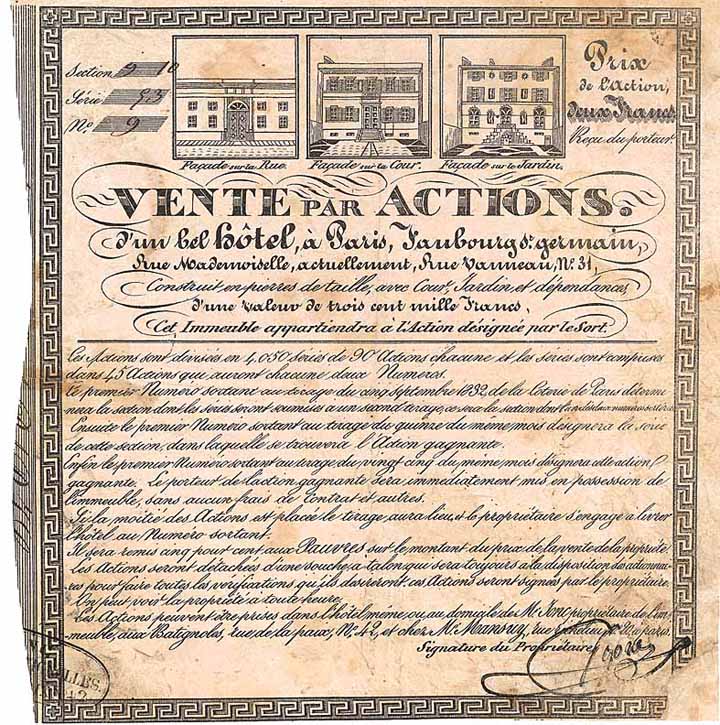 Section 9 10
Série 83
No. 9
Façade sur la Rue.
Façade sur la Cour.
Façade sur le Jardin.
Prix
de l'Action,
deux Francs
Reçu du porteur.
VENTE PAR ACTIONS.
d'un bel hôtel, à Paris, Faubourg St. germain,
Rue Mademoiselle, actuellement, Rue Vanneau, No. 31,
Construit en pierres de taille, avec Cour, Jardin et dépendances,
d'une valeur de trois cent mille Francs,
Cet Immeuble appartiendra à l'Action désignée par le Sort.
Les Actions sont divisées en 4,050 séries de 90 Actions chacune et les séries sont comprises
dans 45 Actions qui auront chacune deux Numéros.
Le premier Numéro sortant au tirage du cinq Septembre 1832, de la Loterie de Paris détermi-
nera la section dont les séries seront soumises à un second tirage, ce sera la section dont
Ensuite le premier Numéro sortant au tirage du quinze du même mois désignera la série
de cette section, dans laquelle se trouvera l'Action gagnante.
Enfin le premier Numéro sortant au tirage du vingt cinq du même mois désignera cette action
gagnante. Le porteur de l'action gagnante sera immédiatement mis en possession de
l'immeuble, sans aucun frais de Contrat et autres.
Si la moitié des Actions est placée le tirage aura lieu, et le propriétaire s'engage à livrer
l'hôtel au Numéro sortant.
Il sera remis cinq pour cent aux Pauvres sur le montant du prix de la vente de la propriété
Les Actions seront détachées d'une souche à talon qui sera toujours à la disposition des actionnai-
res pour faire toutes les vérifications qu'ils désireront, ces Actions seront signées par le propriétaire.
On peut voir la propriété à toute heure.
Les Actions peuvent être prises dans l'hôtel même, ou au domicile de Mr. propriétaire de l'im-
meuble, aux Batignoles, rue de la paix, No. 42, et chez Mr. rue à paris.
Signature du Propriétaire